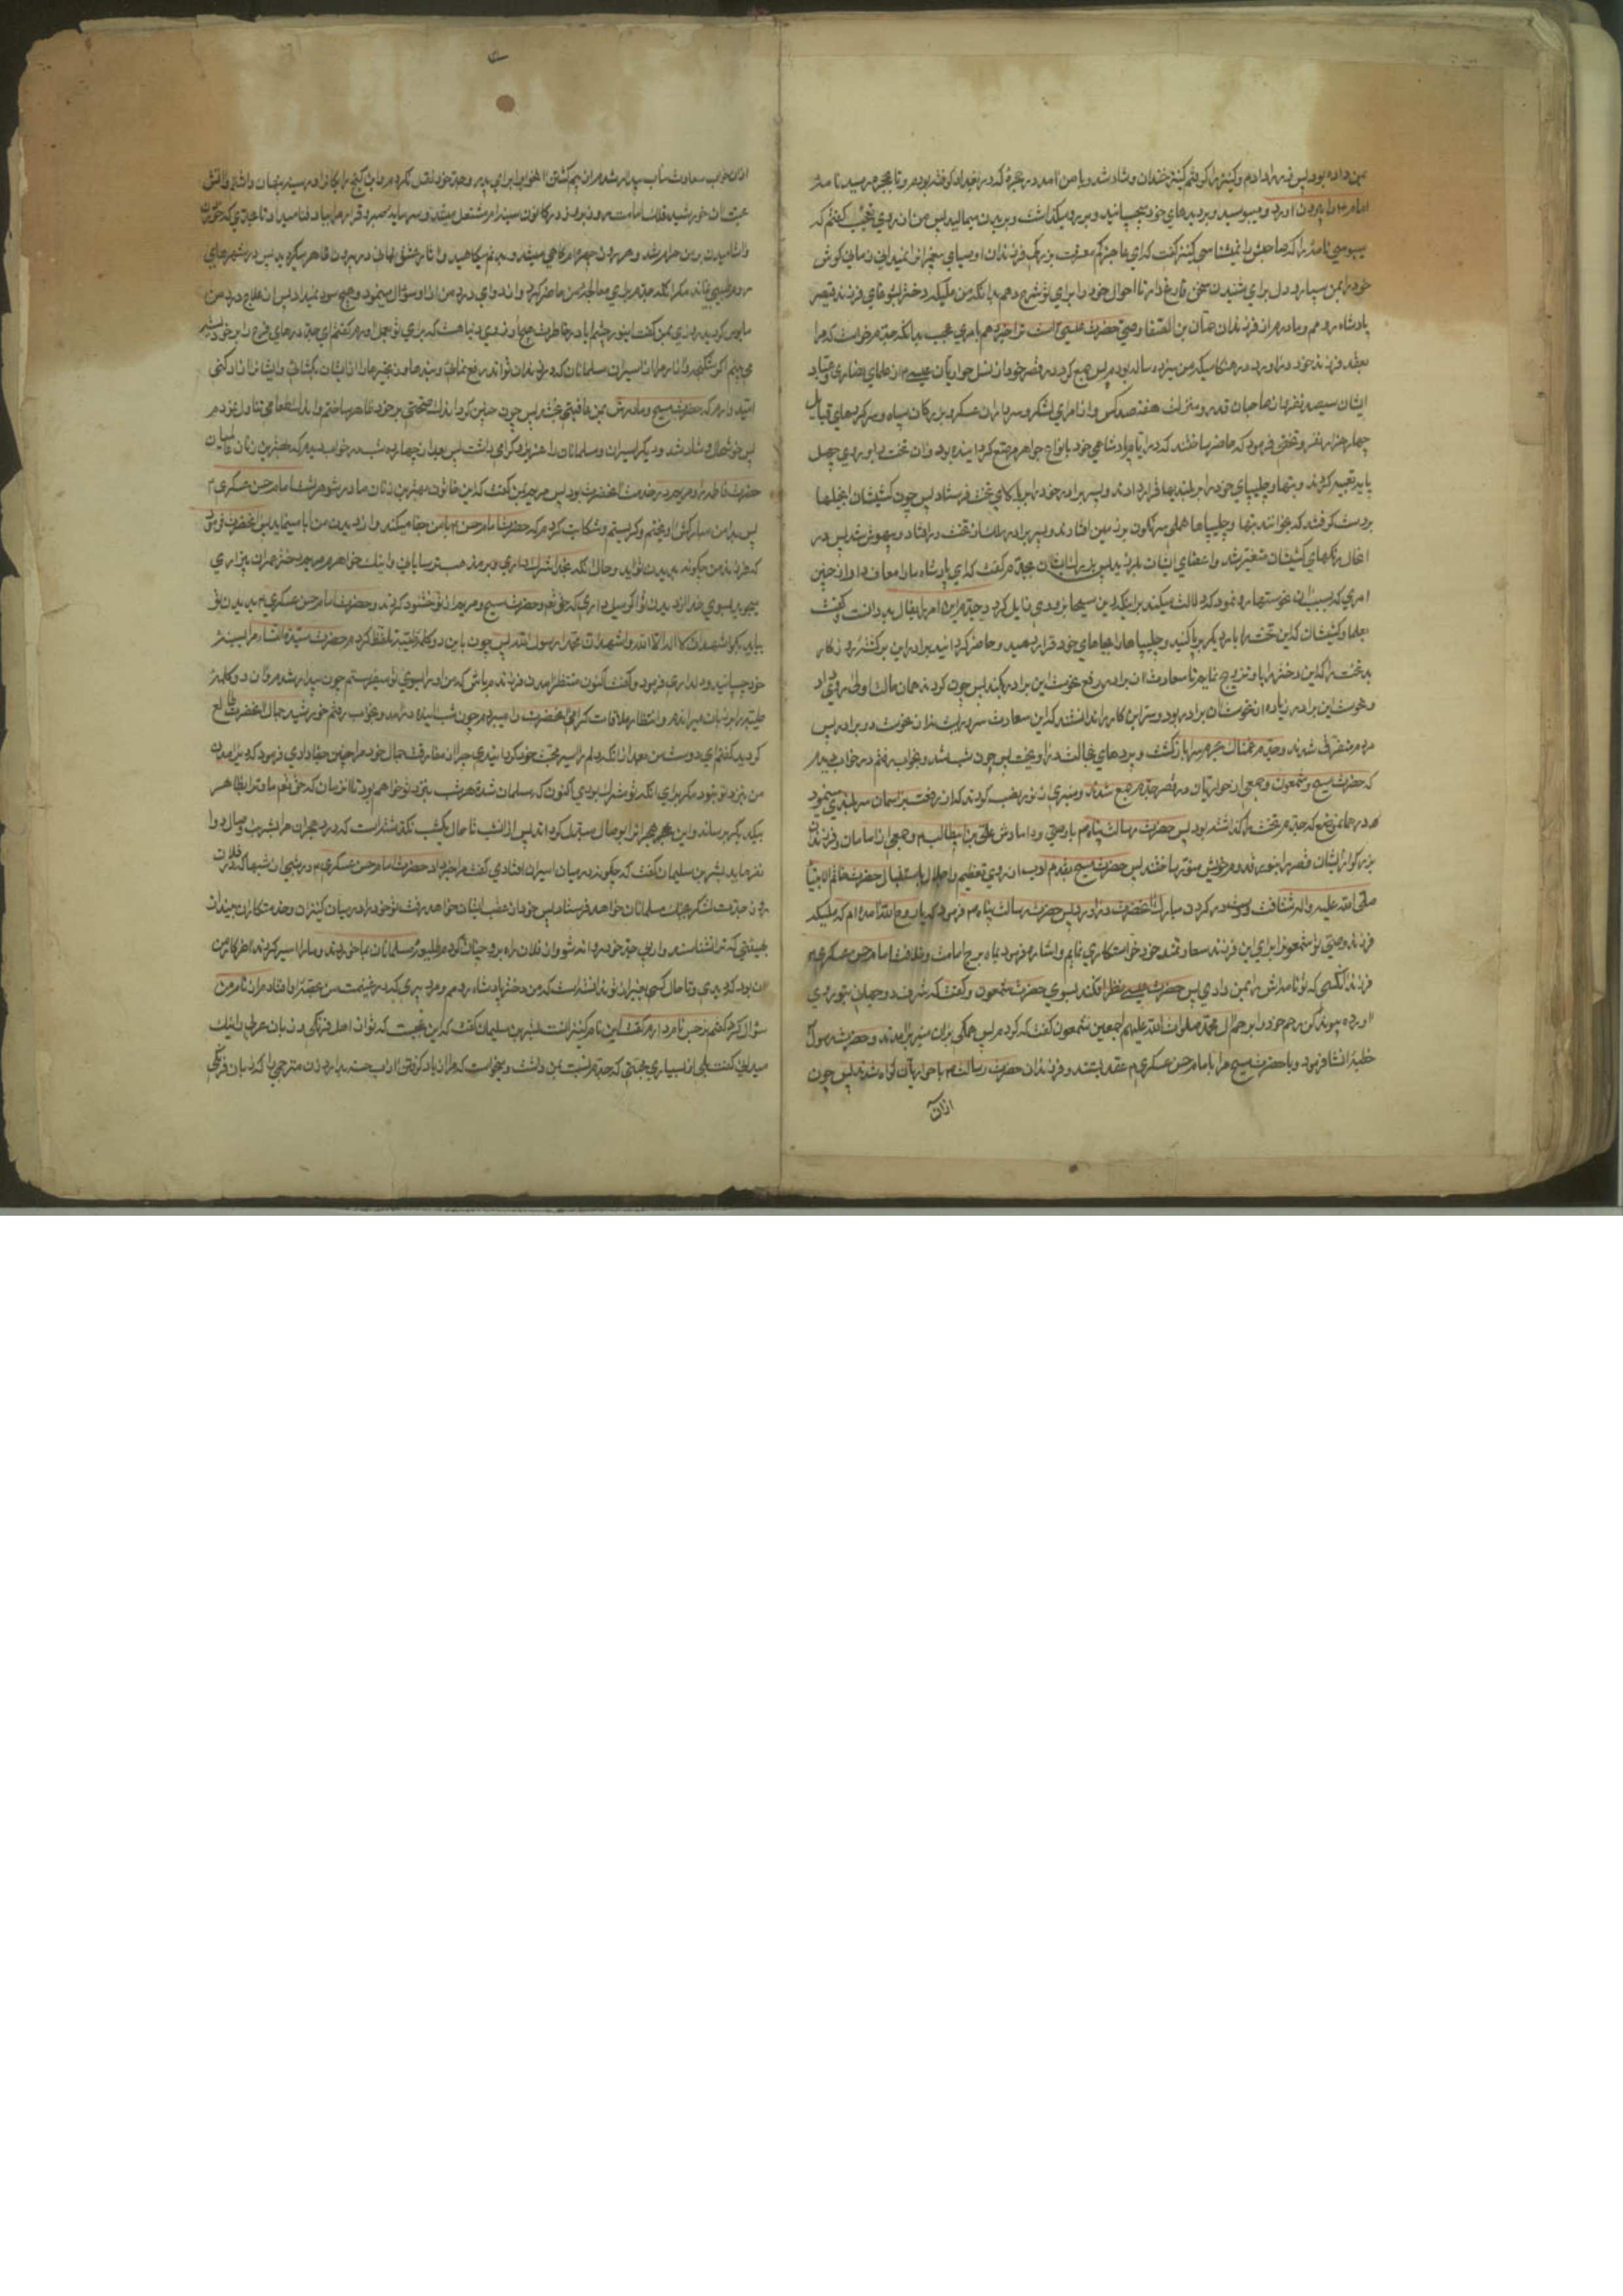 بمن داده بود پس زر را دادم و کنیز را گرفتم کنیز خندان و شاد شد و با من آمد در حجره که در بغداد گرفته بودم و تا بحجره رسید نامه
امام را بیرون آورد و میبوسید و بر دیدهای خود میچسپانید و بر رو میگذاشت و بر بدن میمالید پس من از روی تعجب گفتم که
میبوسی نامهٔ را که صاحبش را نمیشناسی کنیز گفت که ای عاجز کم معرفت ببزرگی فرزندان و اوصیای پیغمبران
خود را بمن بسپار و دل برای شنیدن سخن فارغ دار تا احوال خود را برای تو شرح دهم بدانکه من ملیکه دختر یشوعای فرزند قیصر
پادشاه روم و مادرم از فرزندان حضرت شمعون بن الصفا وصی حضرت عیسی است ترا خبر دهم بامری عجب بدانکه جدم خواست که مرا
بعقد فرزند برادر خود درآورد در هنگامیکه من سیزده ساله بودم پس جمع کرد در قصر خود از نسل حواریان عیسی و از علمای نصاری و عباد
ایشان سیصد نفر و از صاحبان قدر و منزلت هفتصد کس و از امرای لشکر و سرداران عسکر و بزرگان سپاه و سرکردهای قبایل
چهار هزار نفر و تختی فرمود که حاضر ساختند که در ایام پادشاهی خود بانواع جواهر مرصع گردانیده بود و آن تخت را بر روی چهل
پایه تعبیه کردند و بتها و چلیپاهای خود را بر بلندیها قرار دادند و پسر برادر خود را بر بالای تخت فرستاد پس چون کشیشان انجیلها
بر دست گرفتند که بخوانند بتها و چلیپاها همگی سرنگون بر زمین افتادند و پسر برادر ملک از تخت در افتاد و بیهوش شد پس در
آنحال رنگهای کشیشان متغیر شد و اعضای ایشان بلرزید پس بزرگ ایشان بجدم گفت که ای پادشاه ما را معاف دار از چنین
امری که بسبب آن نحوستها رو نمود که دلالت میکند بر اینکه دین مسیحا بزودی زایل گردد جدم این امر را بفال بد دانست و گفت
بعلما و کشیشان که این تخت را بار دیگر برپا کنید و چلیپاها را بجاهای خود قرار دهید و حاضر گردانید برادر این برگشته روزگار
بدبخت را که این دختر را باو تزویج نمایم تا سعادت آن برادر دفع نحوست این برادر بکند پس چون کردند همان حالت اولی روی داد
و نحوست این برادر زیاده از نحوست آن برادر بود و سر این کار را ندانستند که این سعادت سروریست نه از نحوست دو برادر پس
مردم متفرق شدند و جدم غمناک بحرمسرا بازگشت و پردهای خجالت درآویخت پس چون شب شد و بخواب رفتم در خواب دیدم
که حضرت مسیح و شمعون و جمعی از حواریان در قصر جدم جمع شدند و منبری از نور نصب کردند که از رفعت بر آسمان سربلندی مینمود
در همان موضع که جدم تخت را گذاشته بود پس حضرت رسالت پناه با وصی و دامادش علی بن ابیطالب و جمعی از امامان و فرزندان
بزرگوار ایشان قصر را بنور قدوم خویش منور ساختند پس حضرت مسیح بقدم ادب از روی تعظیم و اجلال باستقبال حضرت خاتم الانبیا
صلی الله علیه و آله شتافت و دست در گردن مبارک آنحضرت درآورد پس حضرت رسالت پناه فرمود که یا روح الله آمده‌ام که ملیکه
فرزند وصی تو شمعون را برای این فرزند سعادتمند خود خواستگاری نمایم و اشاره فرمود بماه برج امامت و خلافت امام حسن عسکری
فرزند آنکسی که تو نامه‌اش را بمن دادی پس حضرت عیسی نظر افکند بسوی حضرت شمعون و گفت که شرف دو جهان بتو روی
آورده پیوند کن رحم خود را برحم آل محمد صلوات الله علیهم اجمعین شمعون گفت که کردم پس همگی بر آن منبر برآمدند و حضرت رسول
خطبهٔ انشا فرمود و با حضرت مسیح مرا بامام حسن عسکری عقد بستند و فرزندان حضرت رسالت با حواریان گواه شدند پس چون
ازان
ازان خواب سعادت مآب بیدار شدم از بیم کشتن آنخواب را برای پدر و جد خود نقل نکردم و این گنج رایگان را در سینه پنهان داشتم و آتش
محبت آن خورشید فلک امامت روز بروز در کانون سینه‌ام مشتعل میشد و سرمایهٔ صبر و قرار مرا بباد فنا میداد تا بحدی که خوردن
و آشامیدن بر من حرام شد و هر روز چهره‌ام کاهی میشد و بدنم میکاهید و آثار عشق نهانی در بیرون ظاهر میگردید پس در شهرهای
روم طبیبی نماند مگر آنکه جدم برای معالجهٔ من حاضر کرد و از دوای درد من ازو سؤال مینمود و هیچ سود نمیداد پس از علاج درد من
مایوس گردید روزی بمن گفت ای نور چشم آیا در خاطرت هیچ آرزوی دنیا هست که برای تو بعمل آورم گفتم ای جد درهای فرج را بر خود بسته
می‌بینم اگر شکنجه و آزار از اسیران مسلمانان که در زندان تواند دفع نمائی و بندها و زنجیرها را از ایشان بگشائی و ایشان را آزاد کنی
امید دارم که حضرت مسیح و مادرش بمن عافیتی بخشد پس چون چنین کرد اندک صحتی بر خود ظاهر ساختم و اندک طعامی تناول نمودم
پس خوشحال و شاد شد و دیگر اسیران مسلمانان را عزیز و گرامی داشت پس بعد از چهارده شب در خواب دیدم که بهترین زنان عالمیان
حضرت فاطمه را و مریم در خدمت آنحضرت بود پس مریم بمن گفت که این خاتون بهترین زنان مادر شوهر تست امام حسن عسکری
پس بدامن مبارکش آویختم و گریستم و شکایت کردم که حضرت امام حسن بمن جفا میکند و از دیدن من ابا مینماید پس آنحضرت فرمود
که فرزند من چگونه بدیدن تو آید و حال آنکه بخدا شرک داری و بر مذهب ترسایانی و اینک خواهرم مریم دختر عمران بیزاری
میجوید بسوی خدا از دین تو اگر میل داری که حق تعالی و حضرت مسیح و مریم از تو خشنود گردند و حضرت امام حسن عسکری بدیدن تو
بیاید بگو اشهد ان لا اله الا الله و اشهد ان محمدا رسول الله پس چون باین دو کلمه طیبه تلفظ کردم حضرت سیدة النساء مرا بسینه
خود چسپانید و دلداری فرمود و گفت اکنون منتظر آمدن فرزندم باش که من او را بسوی تو میفرستم چون بیدار شدم آن دو کلمهٔ
طیبه را بر زبان میراندم و انتظار ملاقات گرامی آنحضرت را میبردم چون شب آینده درآمد و بخواب رفتم خورشید جمال آنحضرت طالع
گردید گفتم ای دوست من بعد از آنکه دلم را اسیر محبت خود گردانیدی چرا از مفارقت جمال خود مرا چنین جفا دادی فرمود که دیر آمدن
من بنزد تو نبود مگر برای آنکه تو مشرک بودی اکنون که مسلمان شدهٔ هر شب بنزد تو خواهم بود تا آنزمان که حق تعالی ما و ترا بظاهر
بیکدیگر برساند و این هجر را بوصال مبدل گرداند پس از آنشب تا حال یکشب نگذشته است که درد هجران مرا بشربت وصال دوا
نفرماید بشر بن سلیمان گفت که چگونه در میان اسیران افتادی گفت مرا خبر داد حضرت امام حسن عسکری در شبی از شبها که در فلان
روز جدت لشکر بجنگ مسلمانان خواهد فرستاد پس خود از عقب ایشان خواهد رفت تو خود را در میان کنیزان و خدمتکاران بینداز
بهیئتی که ترا نشناسند و از پی جد خود روانه شو و از فلان راه برو چنان کردم طلیعهٔ مسلمانان بما خوردند و ما را اسیر کردند آخر کار من
آن بود که دیدی و تا حال کسی بغیر از تو ندانسته است که من دختر پادشاه رومم و مرد پیری که در غنیمت من بحصهٔ او افتادم از نام من
سؤال کرد گفتم نرجس نام دارم گفت این نام کنیزانست بشر بن سلیمان گفت که این عجبست که تو از اهل فرنگی و زبان عربی را نیک
میدانی گفت بلی از بسیاری محبتی که جدم نسبت بمن داشت و میخواست که مرا بر یاد گرفتن آداب حسنه بدارد زن مترجمی را که زبان فرنگی